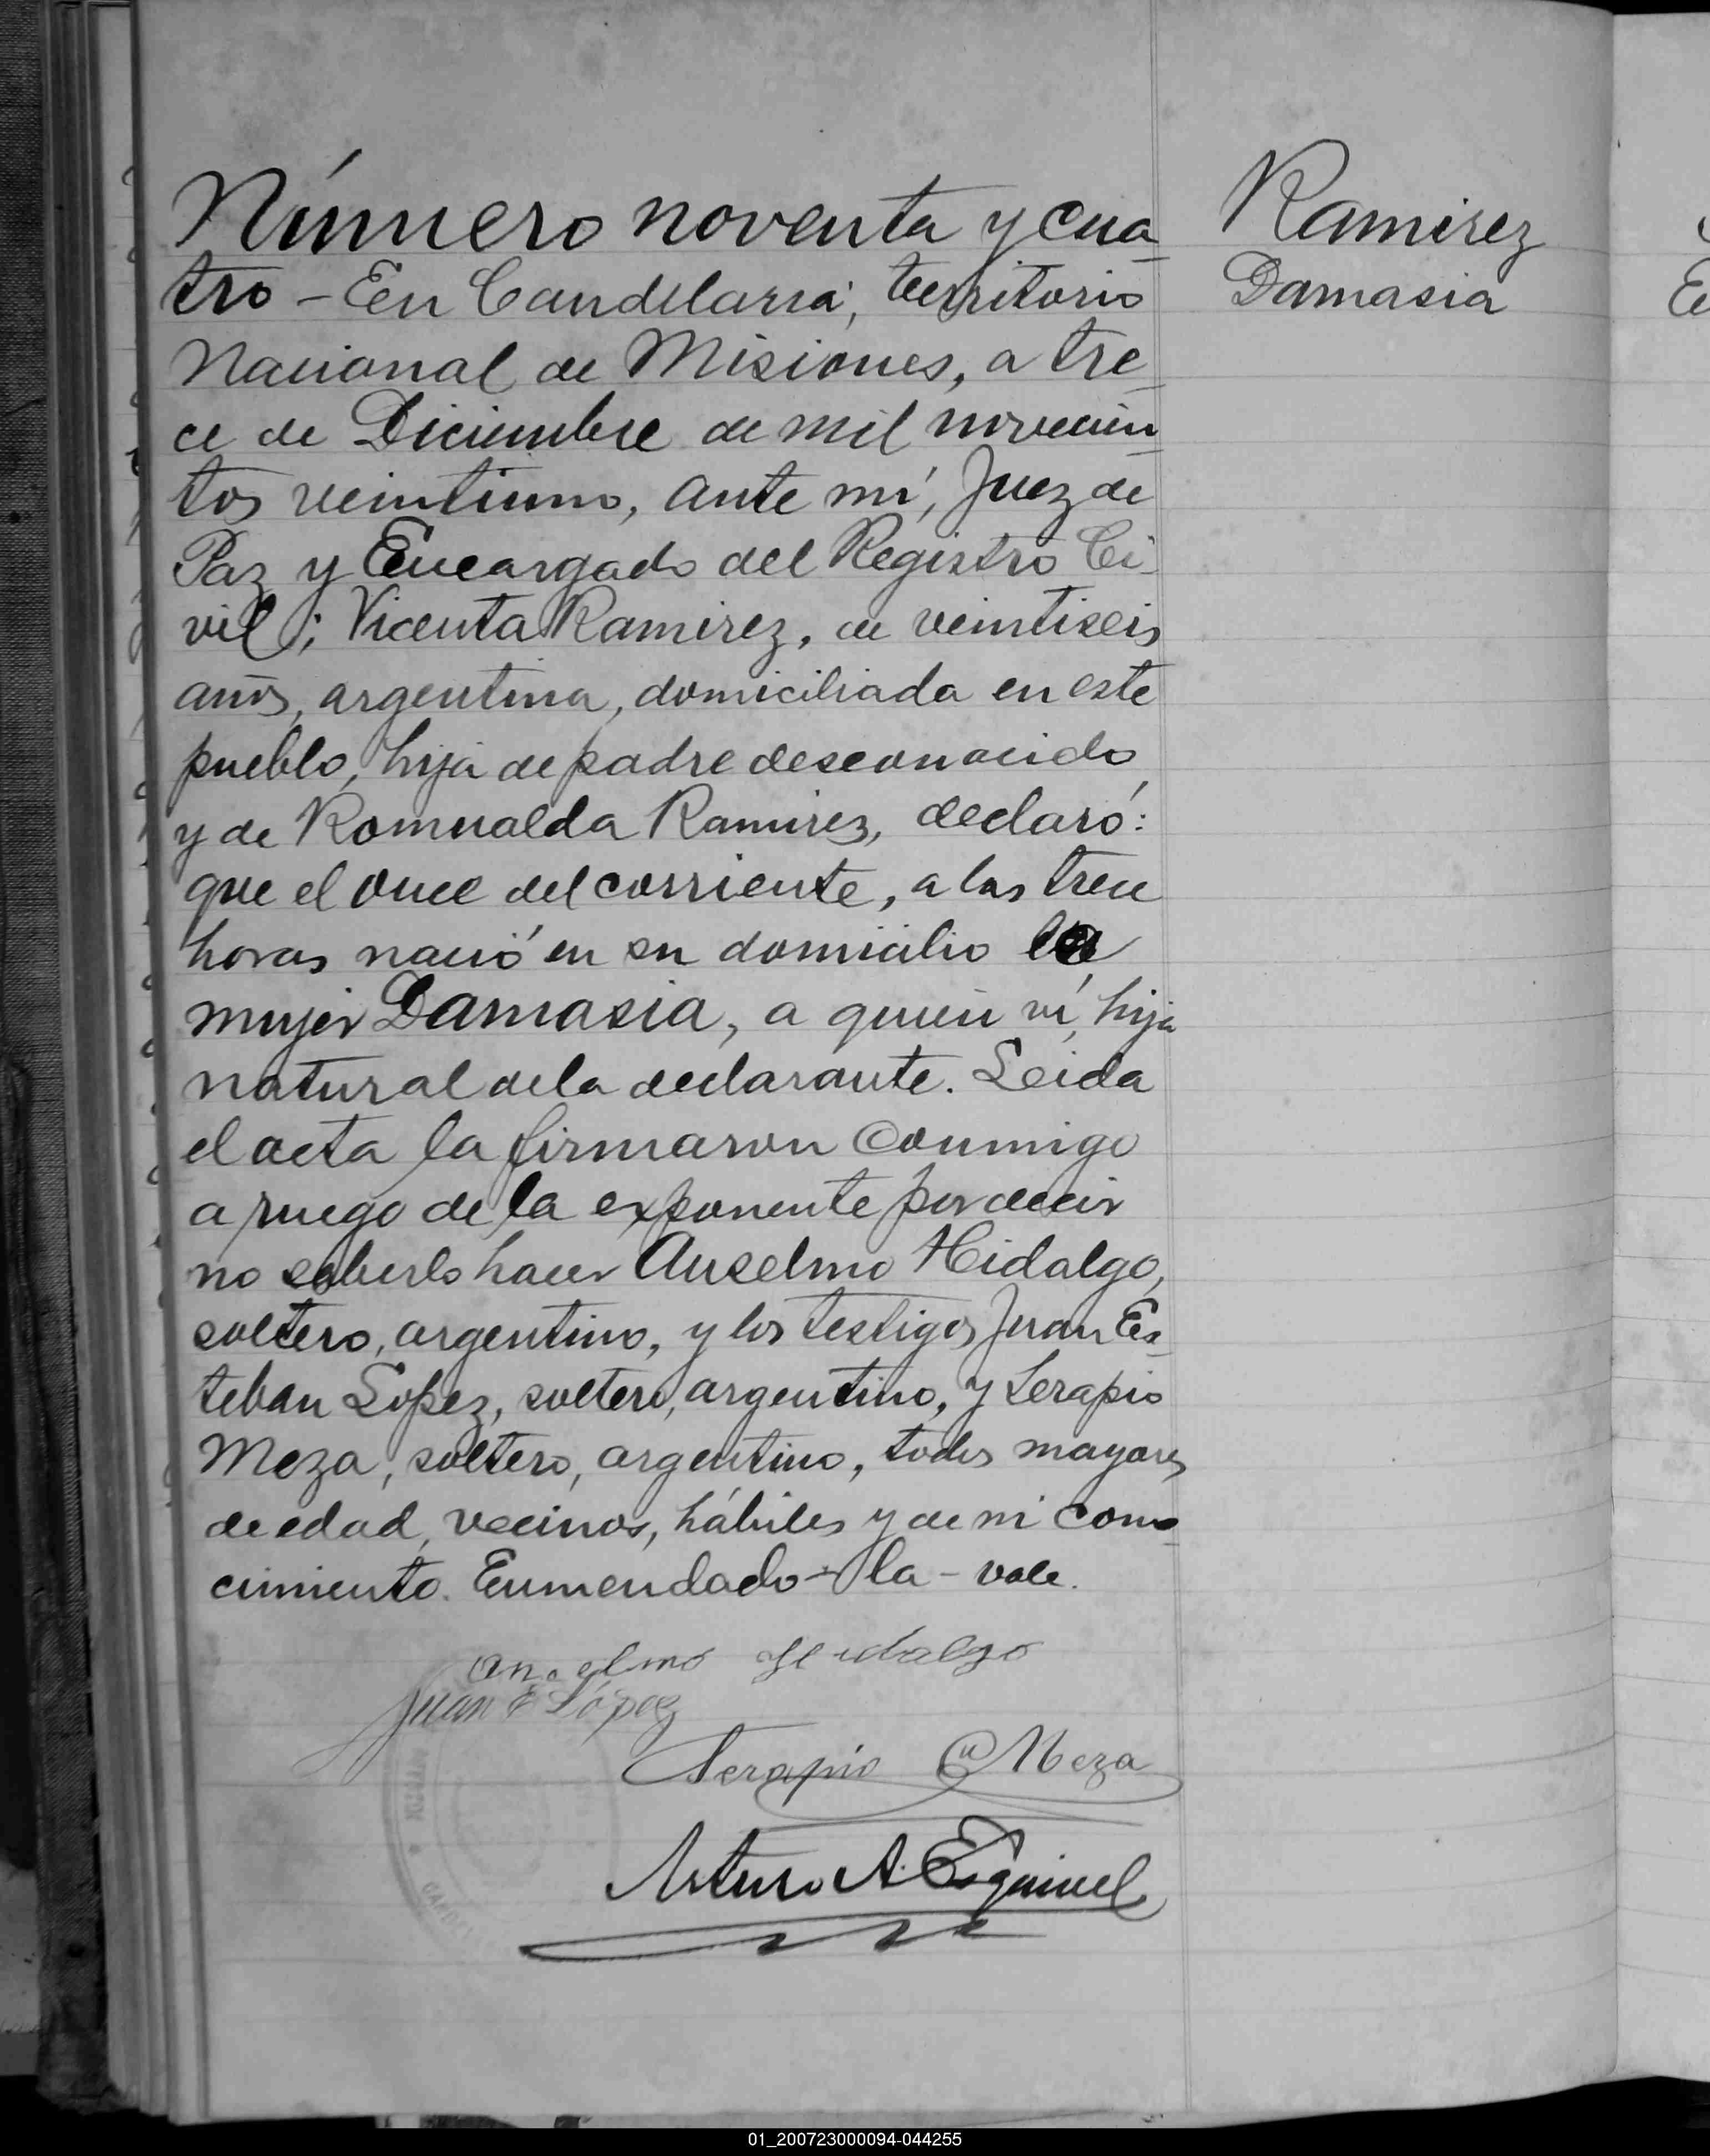 Número noventa y cua-
tro – En Candelaria, territorio
Nacional de Misiones, a tre-
ce de Diciembre de mil novecien-
tos veintiuno, ante mí, Juez de
Paz y Encargado del Registro Ci-
vil; Vicenta Ramirez, de veintiseis
años, argentina, domiciliada en este
pueblo, hija de padre desconocido,
y de Romualda Ramirez, declaró:
que el once del corriente, a las trece
horas nació en su domicilio la
mujer Damasia, a quien ví, hija
natural de la declarante. Leida
el acta la firmaron conmigo
a ruego de la exponente por decir
no saberlo hacer Anselmo Hidalgo,
soltero, argentino, y los testigos Juan Es-
teban Lopez, soltero, argentino, y Serapio
Meza, soltero, argentino, todos mayores
de edad, vecinos, hábiles y de mi cono-
cimiento. Enmendado – la – vale.
Anselmo Hidalgo
Juan E López
Serapio Meza
Arturo A. Esquivel
Ramirez
Damasia
01_200723000094-044255